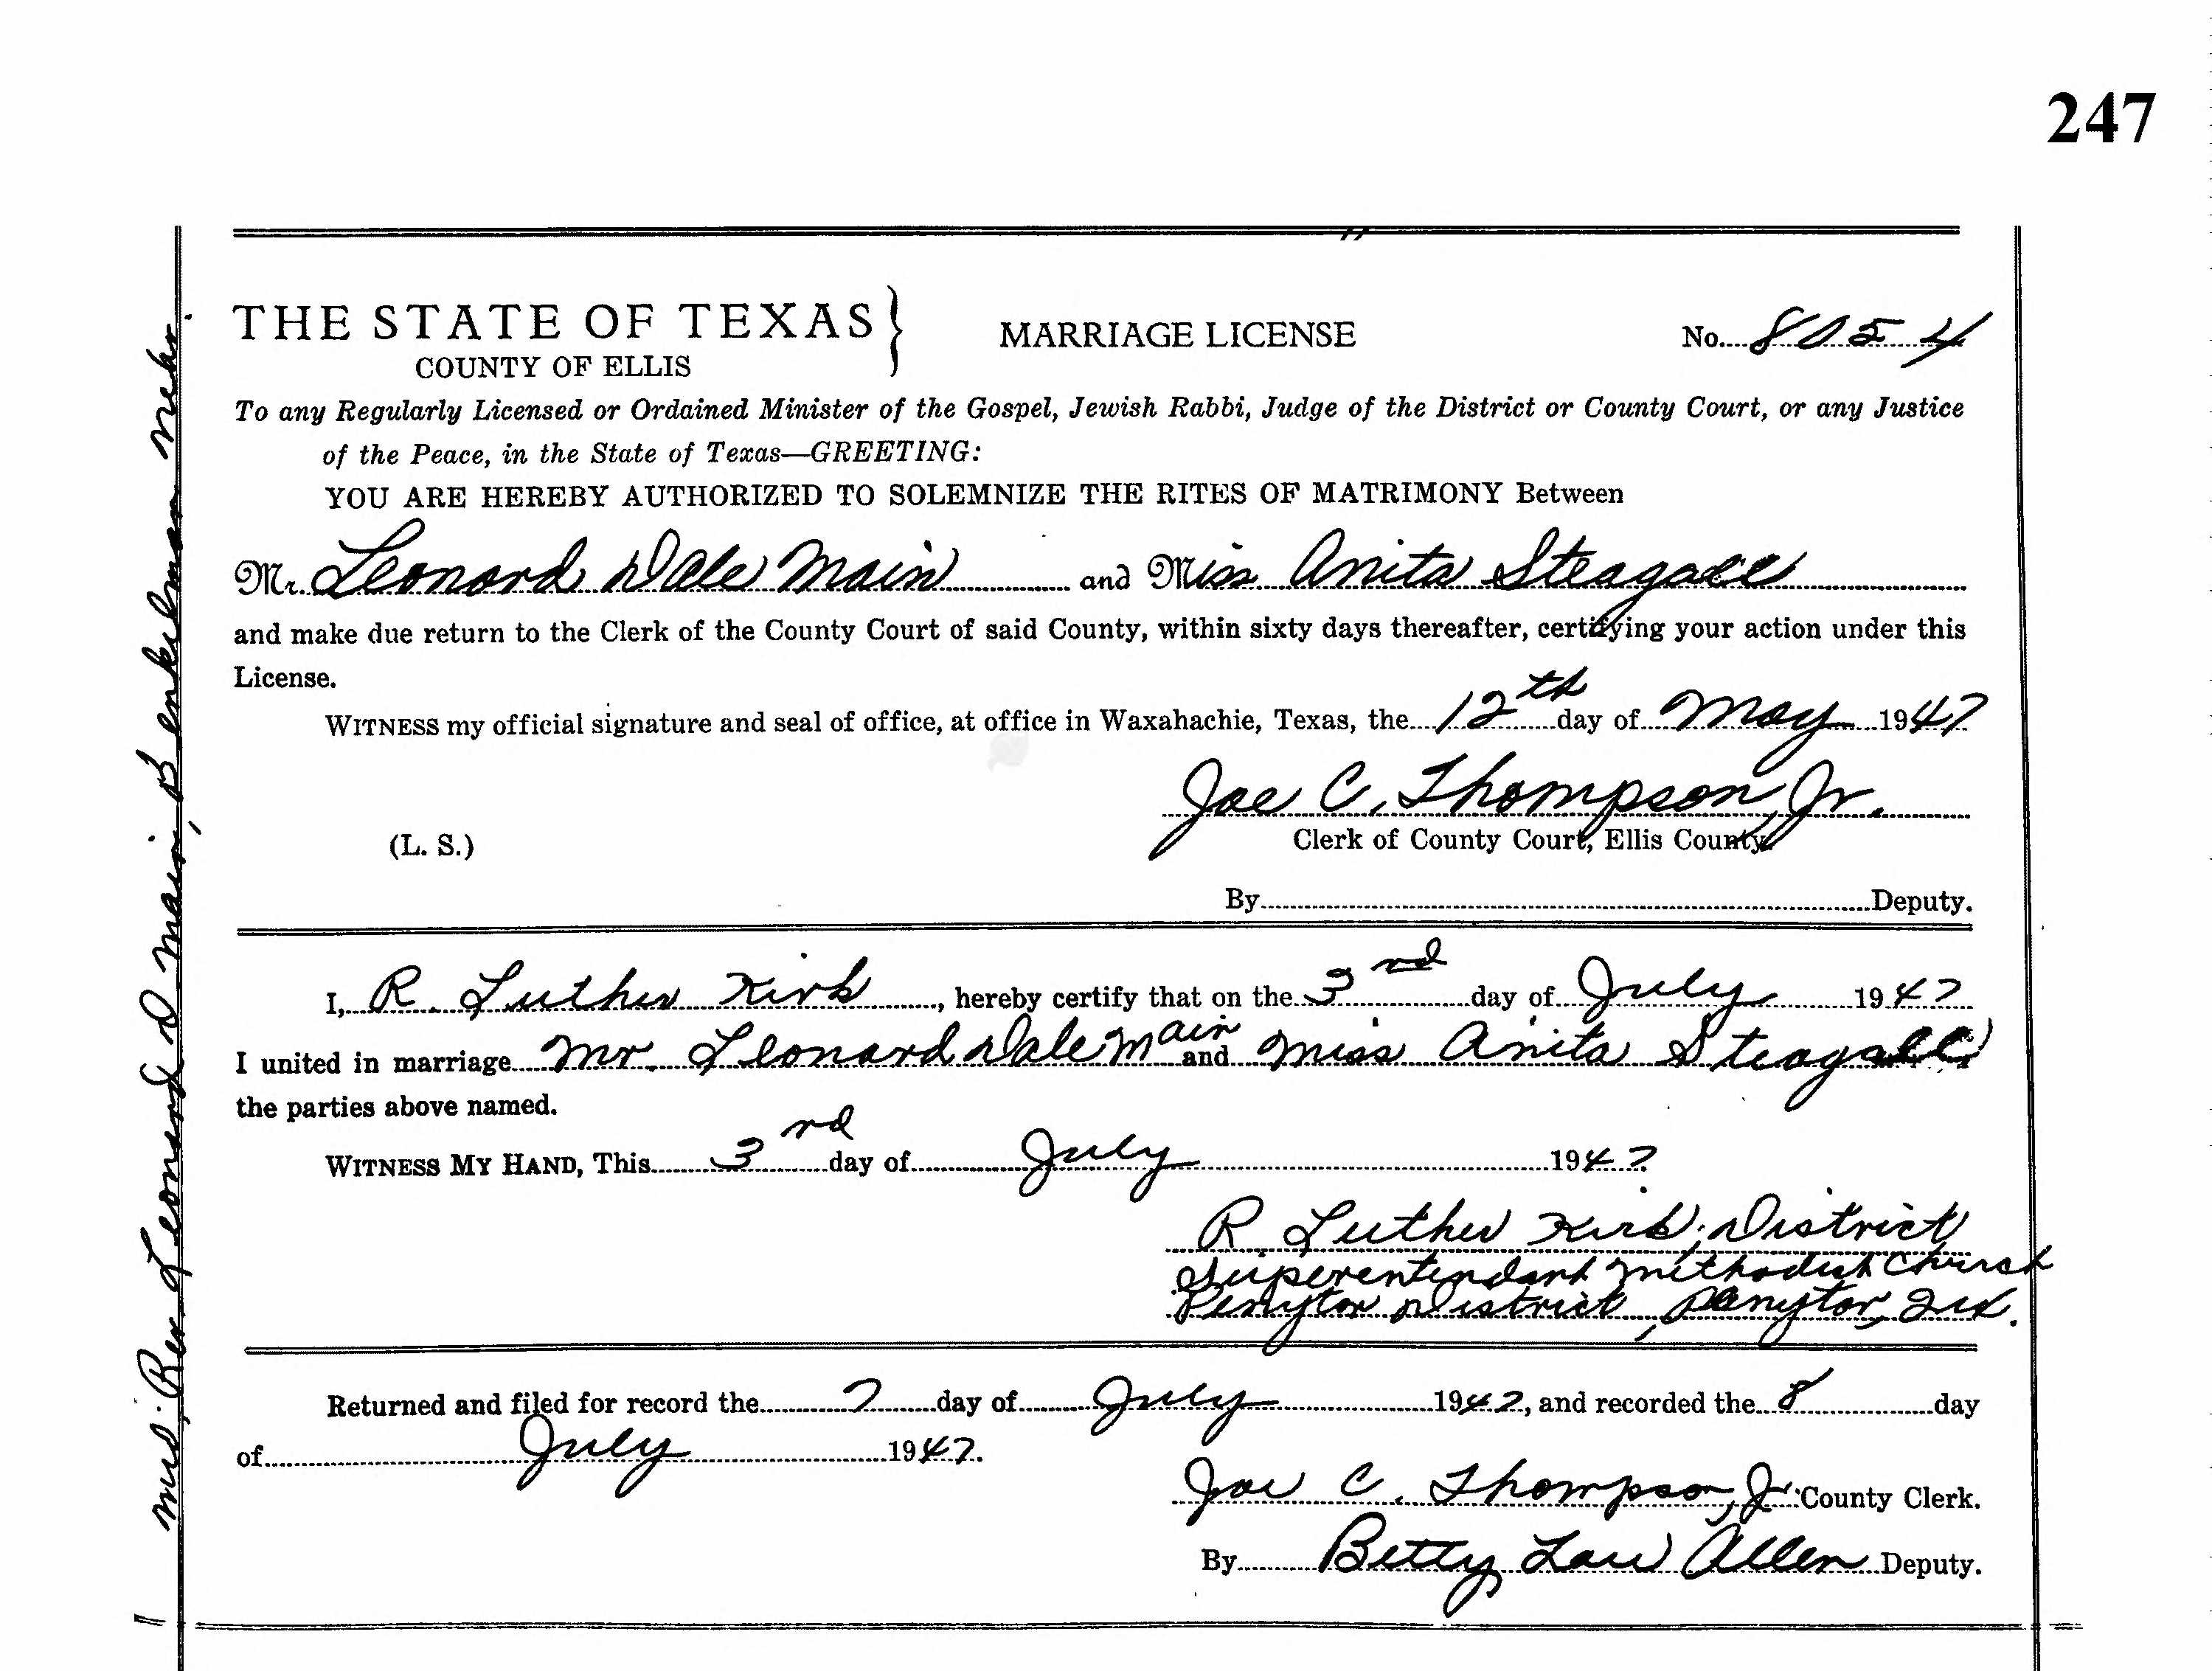 247
THE STATE OF TEXAS } MARRIAGE LICENSE No. 8054
COUNTY OF ELLIS
To any Regularly Licensed or Ordained Minister of the Gospel, Jewish Rabbi, Judge of the District or County Court, or any Justice
of the Peace, in the State of Texas—GREETING:
YOU ARE HEREBY AUTHORIZED TO SOLEMNIZE THE RITES OF MATRIMONY Between
Mr. Leonard Dale Main and Miss Anita Steagall
and make due return to the Clerk of the County Court of said County, within sixty days thereafter, certifying your action under this
License.
WITNESS my official signature and seal of office, at office in Waxahachie, Texas, the 12th day of May 1947
Joe C. Thompson, Jr.
(L. S.) Clerk of County Court, Ellis County.
By Deputy.
I, R. Luther Kirk, hereby certify that on the 3rd day of July 1947
I united in marriage Mr. Leonard Dale Main and Miss Anita Steagall
the parties above named.
WITNESS MY HAND, This 3rd day of July 1947.
R. Luther Kirk, District
Superentendant Methodist Church
Perryton District, Perryton, Tex.
Returned and filed for record the 7 day of July 1947, and recorded the 8 day
of July 1947.
Joe C. Thompson, Jr. County Clerk.
By Betty Lou Allen Deputy.
Mrs. Rev. Leonard D Main, Benkelman Nebr.